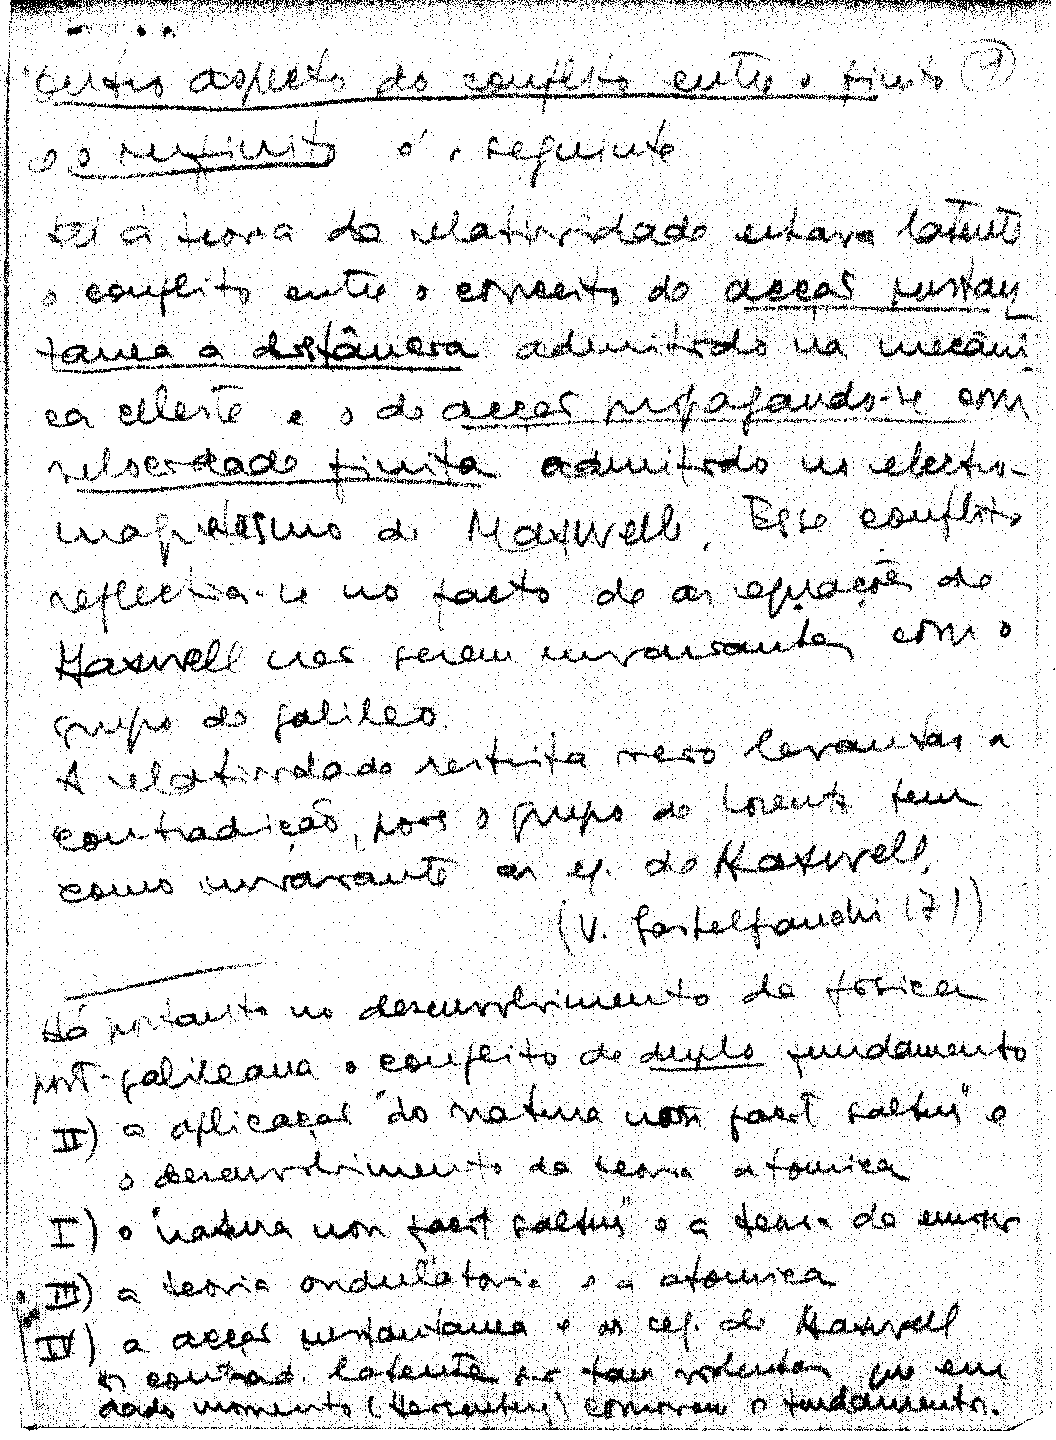 Outro aspecto do conflito entre o finito
e o infinito é o seguinte
Até à teoria da relatividade estava latente
o conflito entre o conceito de acção instan
tanea a distância admitido na mecâni
ca celeste e o de acção propagando-se com
velocidade finita admitido no electro-
magnetismo de Maxwell. Esse conflito
reflectia-se no facto de as equações de
Maxwell não serem invariantes com o
grupo de Galileo.
A relatividade restrita veio levantar a
contradição, pois o grupo de Lorentz tem
como invariante as eq. de Maxwell.
(V. Castelfranchi (71)
Há portanto no desenvolvimento da física
post-galileana o conflito de duplo fundamento
II) a aplicação "do natura non facit saltus" e
o desenvolvimento da teoria atomica
I) o "natura non facit saltus" e a teoria da
III) a teoria ondulatoria e a atomica
IV) a acção instantanea e as eq. de Maxwell
as contrad. latentes são tam violentas que em
dado momento ( ) comovem os fundamentos.